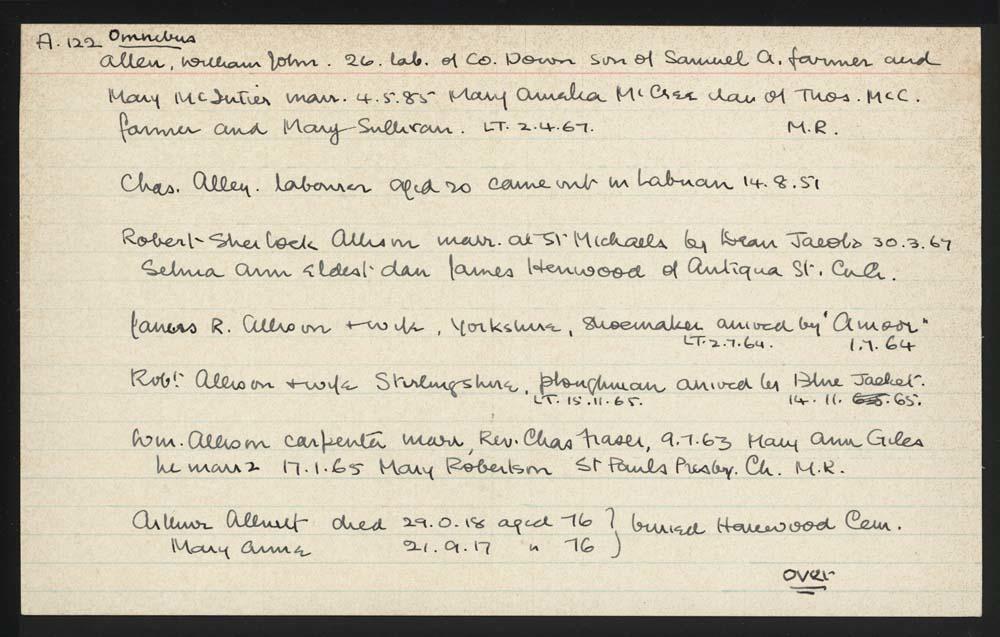 A.122 Omnibus
Allen, William John. 26. lab. of Co. Down son of Samuel A. farmer and
Mary McIntier marr. 4.5.85 Mary Amelia McCrea dau of Thos. McC.
farmer and Mary Sullivan. LT. 2.4.67. M.R.
Chas. Alley. labourer aged 20 came out in Labuan 14.8.51
Robert Sherlock Allison marr. at St Michaels by Dean Jacobs 30.3.67
Selina Ann eldest dau James Henwood of Antigua St. ChCh.
James R. Allison + wife, Yorkshire, shoemaker arrived by "Amoor"
LT. 2.7.64. 1.7.64
Robt. Allison + wife Stirlingshire, ploughman arrived by Blue Jacket.
LT. 15.11.65. 14.11. 65.
Wm. Allison carpenter marr, Rev. Chas Fraser, 9.7.63 Mary Ann Giles
he marr 2 17.1.65 Mary Robertson St Pauls Presby. Ch. M.R.
Arthur Allnutt died 29.0.18 aged 76 } buried Homewood Cem.
Mary Anne 21.9.17 " 76 }
over